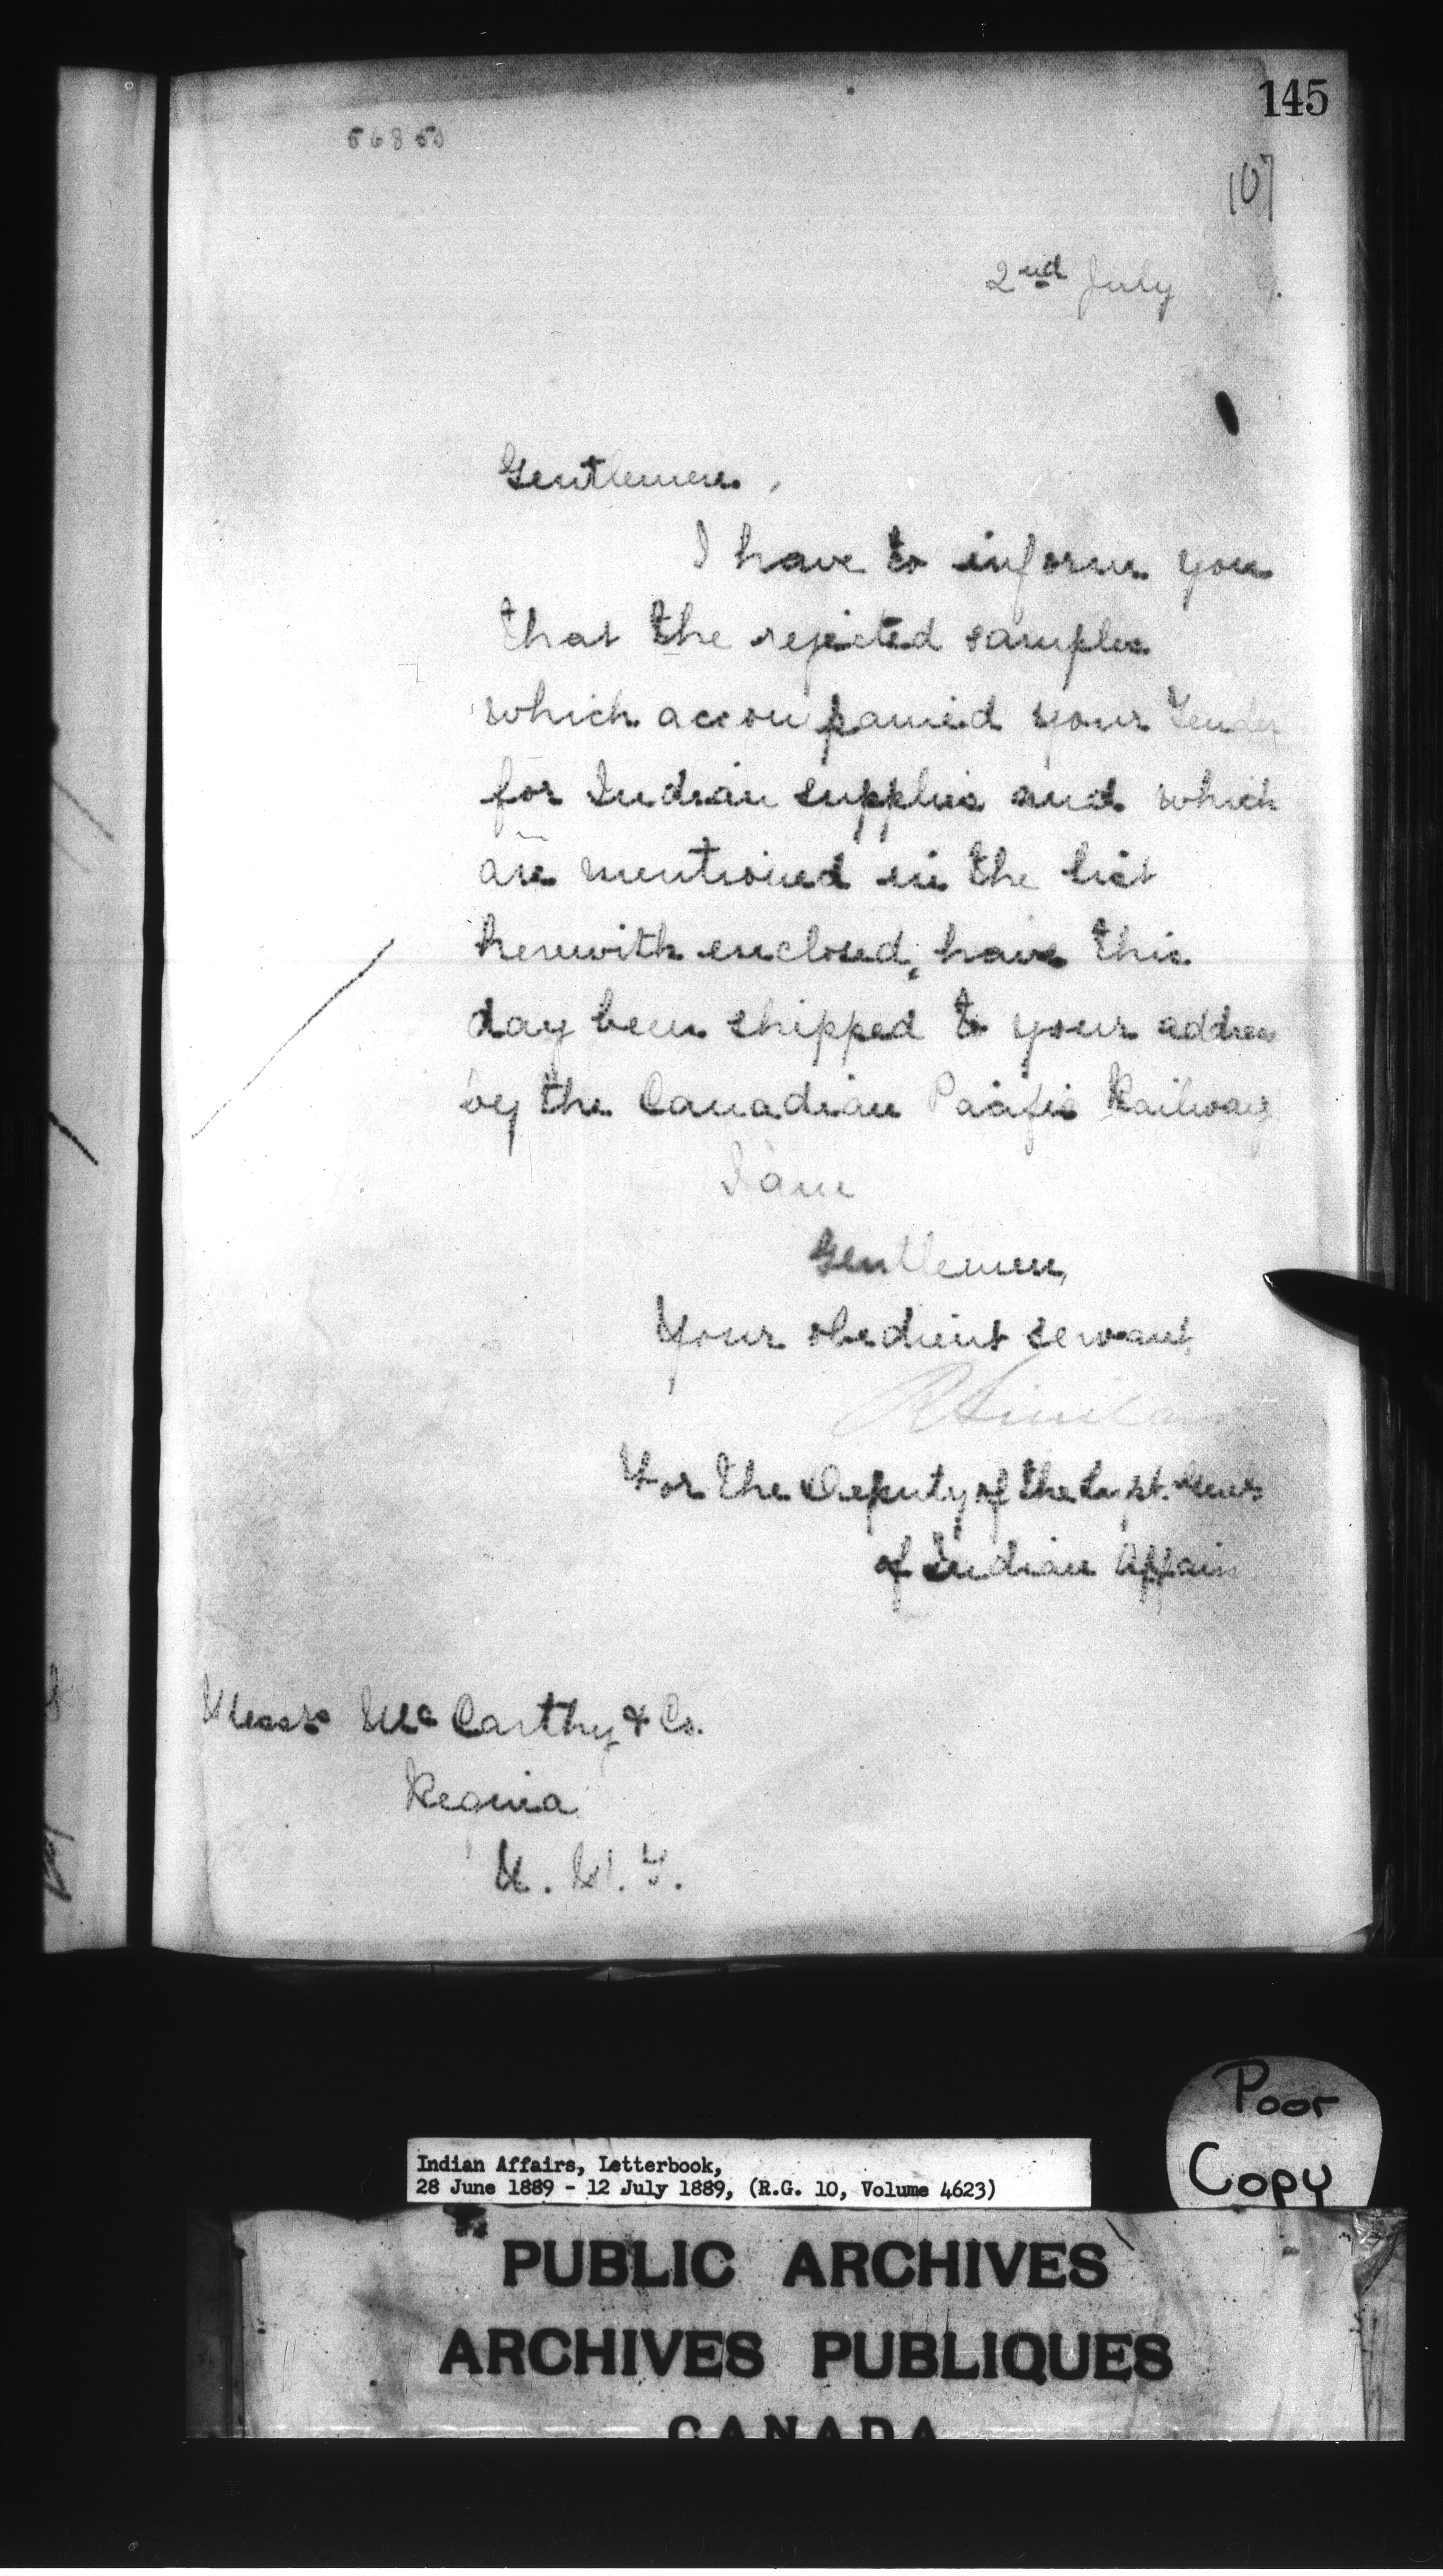 145
56850
107
2nd July 9.
Gentlemen,
I have to inform you
that the rejected samples
which accompanied your Tender
for Indian supplies and which
are mentioned in the list
herewith enclosed, have this
day been shipped to your address
by the Canadian Pacific Railway
I am
Gentlemen,
Your obedient servant,
R Sinclair
For the Deputy of the Supt. Genl
of Indian Affairs
Messrs McCarthy & Co.
Regina
N. W. T.
Poor
Copy
Indian Affairs, Letterbook,
28 June 1889 - 12 July 1889, (R.G. 10, Volume 4623)
PUBLIC ARCHIVES
ARCHIVES PUBLIQUES
CANADA